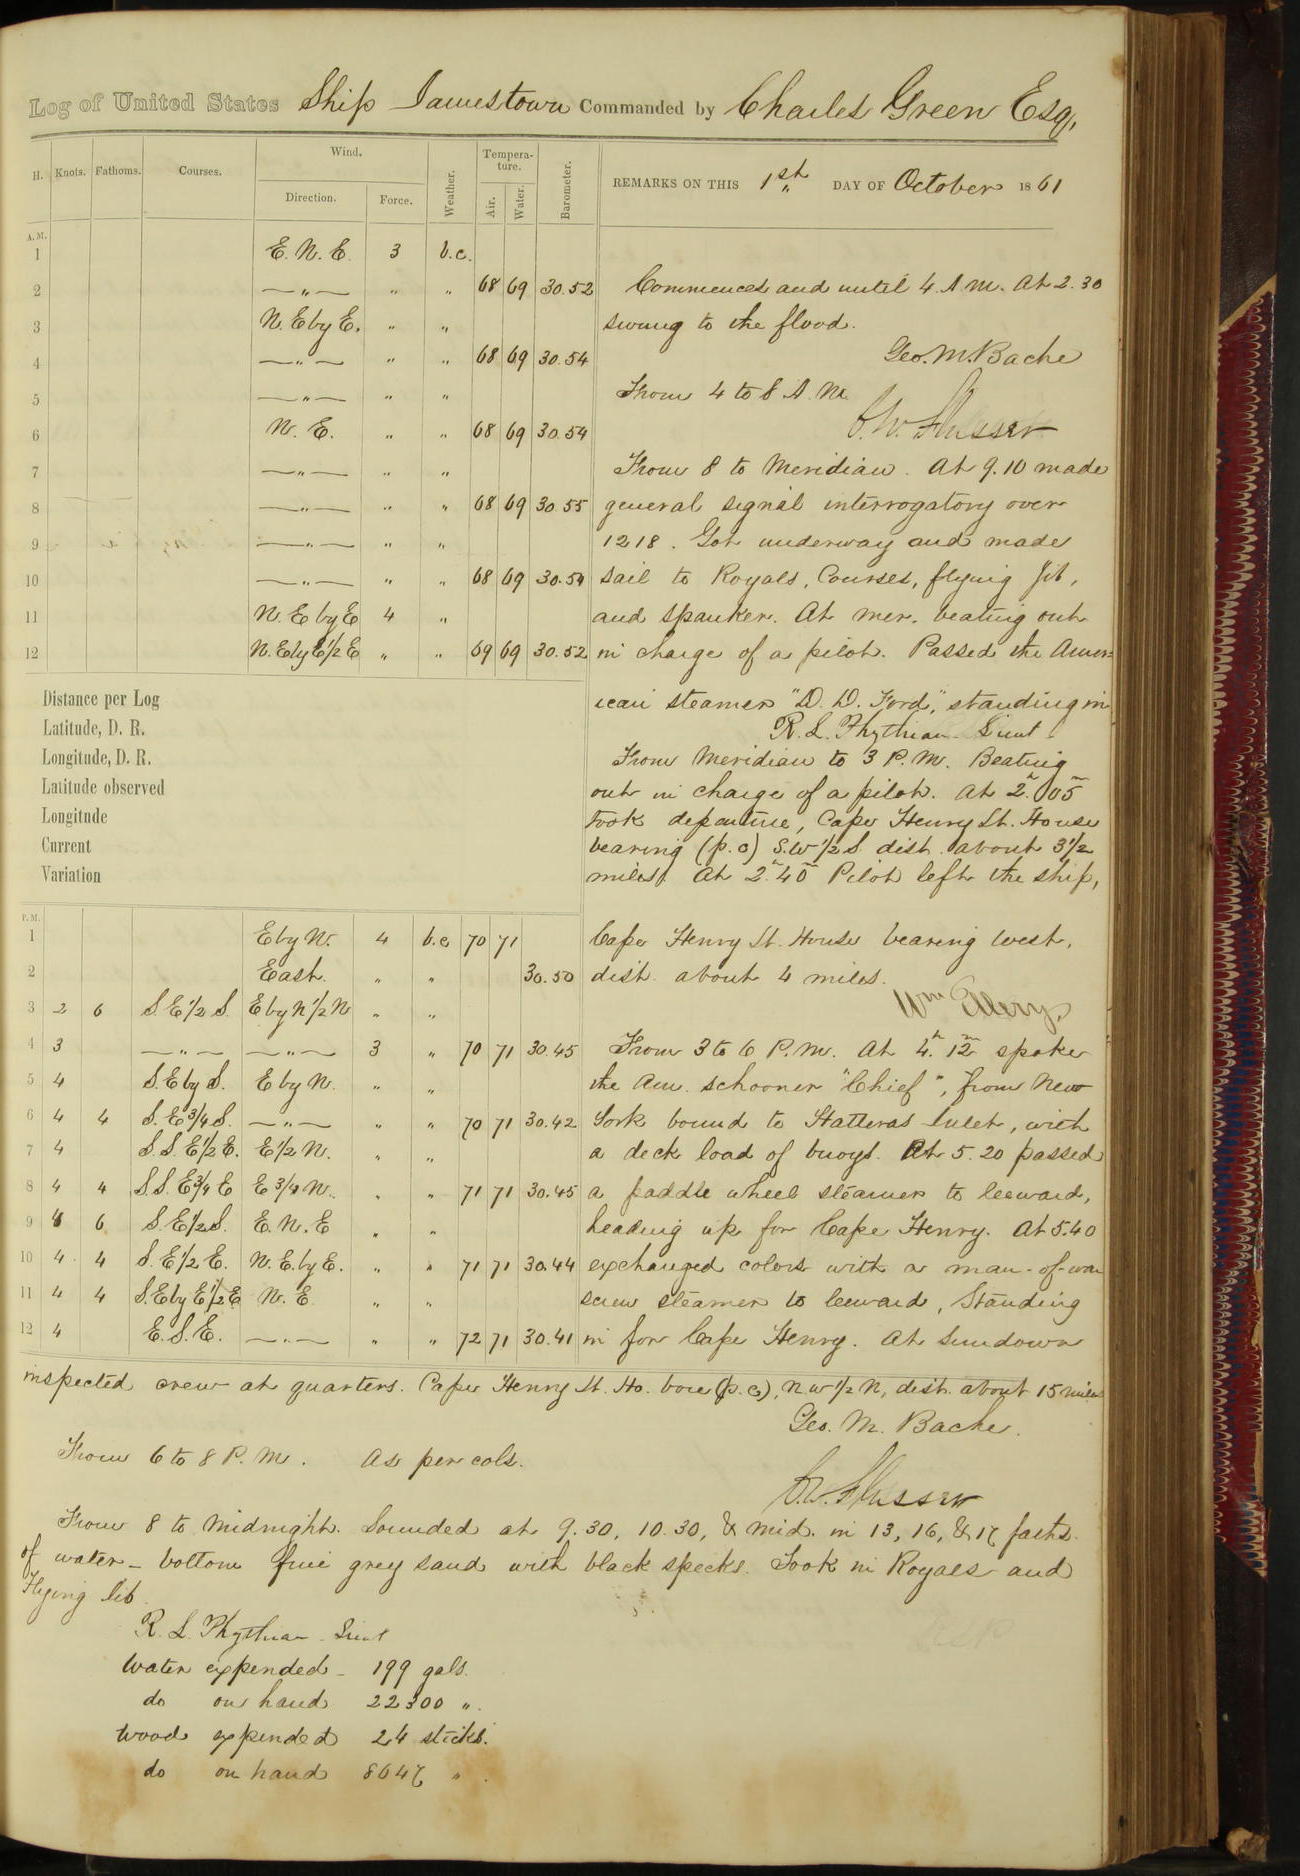 Log of United States Ship Jamestown Commanded by Charles Green Esq,
H. Knots. Fathoms. Courses. Wind. Direction. Force. Weather. Tempera-ture. Air. Water. Barometer. REMARKS ON THIS 1st DAY OF October 1861
A.M.
1 E. N. E. 3 b.c.
2 —"— " " 68 69 30.52 Commences and until 4 A.M. At 2.30
3 N. E by E. " " swung to the flood.
4 —"— " " 68 69 30.54 Geo. M. Bache
5 —"— " " From 4 to 8 A.M.
6 N. E. " " 68 69 30.54 C. W. Flusser
7 —"— " " From 8 to Meridian. At 9.10 made
8 —"— " " 68 69 30.55 general signal interrogatory over
9 —"— " " 1218. Got underway and made
10 —"— " " 68 69 30.54 sail to Royals, Courses, flying jib,
11 N. E by E 4 " and spanker. At mer. beating out
12 N. E by E 1/2 E " " 69 69 30.52 in charge of a pilot. Passed the Amer=
Distance per Log
Latitude, D. R.
Longitude, D. R.
Latitude observed
Longitude
Current
Variation
ican steamer "D. D. Ford," standing in
R. L. Phythian Lieut
From Meridian to 3 P.M. Beating
out in charge of a pilot. At 2h. 05m
took departure, Cape Henry Lt. House
bearing (p.c) S.W 1/2 S dist. about 3 1/2
miles. At 2h. 40m Pilot left the ship,
P.M.
1 E by N. 4 b.c 70 71 Cape Henry Lt. House bearing West,
2 East. " " 30.50 dist. about 4 miles.
Wm Ellery.
3 2 6 S. E 1/2 S. E by N 1/2 N " "
4 3 —"— —"— 3 " 70 71 30.45 From 3 to 6 P.M. At 4h. 12m spoke
5 4 S. E by S. E by N. " " the Am. schooner "Chief", from New
6 4 4 S. E 3/4 S. —"— " " 70 71 30.42 York bound to Hatteras Inlet, with
7 4 S. S. E 1/2 E. E 1/2 N. " " a deck load of buoys. At 5.20 passed
8 4 4 S. S. E 3/4 E E 3/4 N. " " 71 71 30.45 a paddle wheel steamer to leeward,
9 6 S. E 1/2 S. E. N. E " " heading up for Cape Henry. At 5.40
10 4 4 S. E 1/2 E. N. E. by E. " " 71 71 30.44 exchanged colors with a man-of-war
11 4 4 S. E by E 1/2 E N. E " " screw steamer to leeward, standing
12 4 E. S. E. —"— " " 72 71 30.41 in for Cape Henry. At sundown
inspected crew at quarters. Cape Henry Lt. Ho. bore (p.c), N W 1/2 N, dist. about 15 miles
Geo. M. Bache.
From 6 to 8 P.M. As per cols.
C. W. Flusser
From 8 to Midnight. Sounded at 9.30, 10.30, & mid. in 13, 16, & 17 faths.
of water - bottom fine grey sand with black specks. Took in Royals and
Flying Jib.
R. L. Phythian Lieut
Water expended - 199 gals.
do on hand 22300 "
Wood expended 24 sticks.
do on hand 8647 "